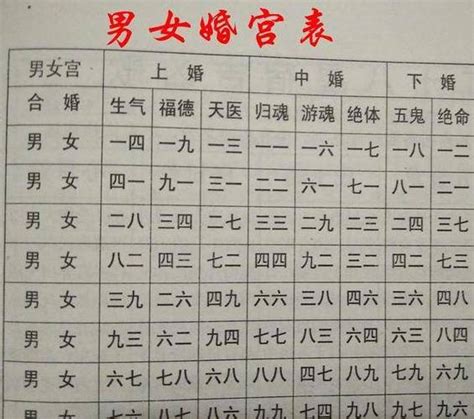 男女婚宫表
男女宫 上婚 中婚 下婚
合婚 生气 福德 天医 归魂 游魂 绝体 五鬼 绝命
男女 一四 一九 一三 一一 一六 一七 一八 一二
男女 四一 九一 三一 二二 六一 七一 八一 二一
男女 二八 三四 二七 三三 二九 二三 二四 三七
男女 八二 四三 七二 四四 九二 三二 四二 七三
男女 三九 二六 四九 六六 三八 四六 三六 四八
男女 九三 六二 九四 七七 八三 六四 六三 八四
男女 六七 七八 六八 八八 四七 八九 七九 六九
男女 七六 八七 八六 九九 七四 九八 九七 九六